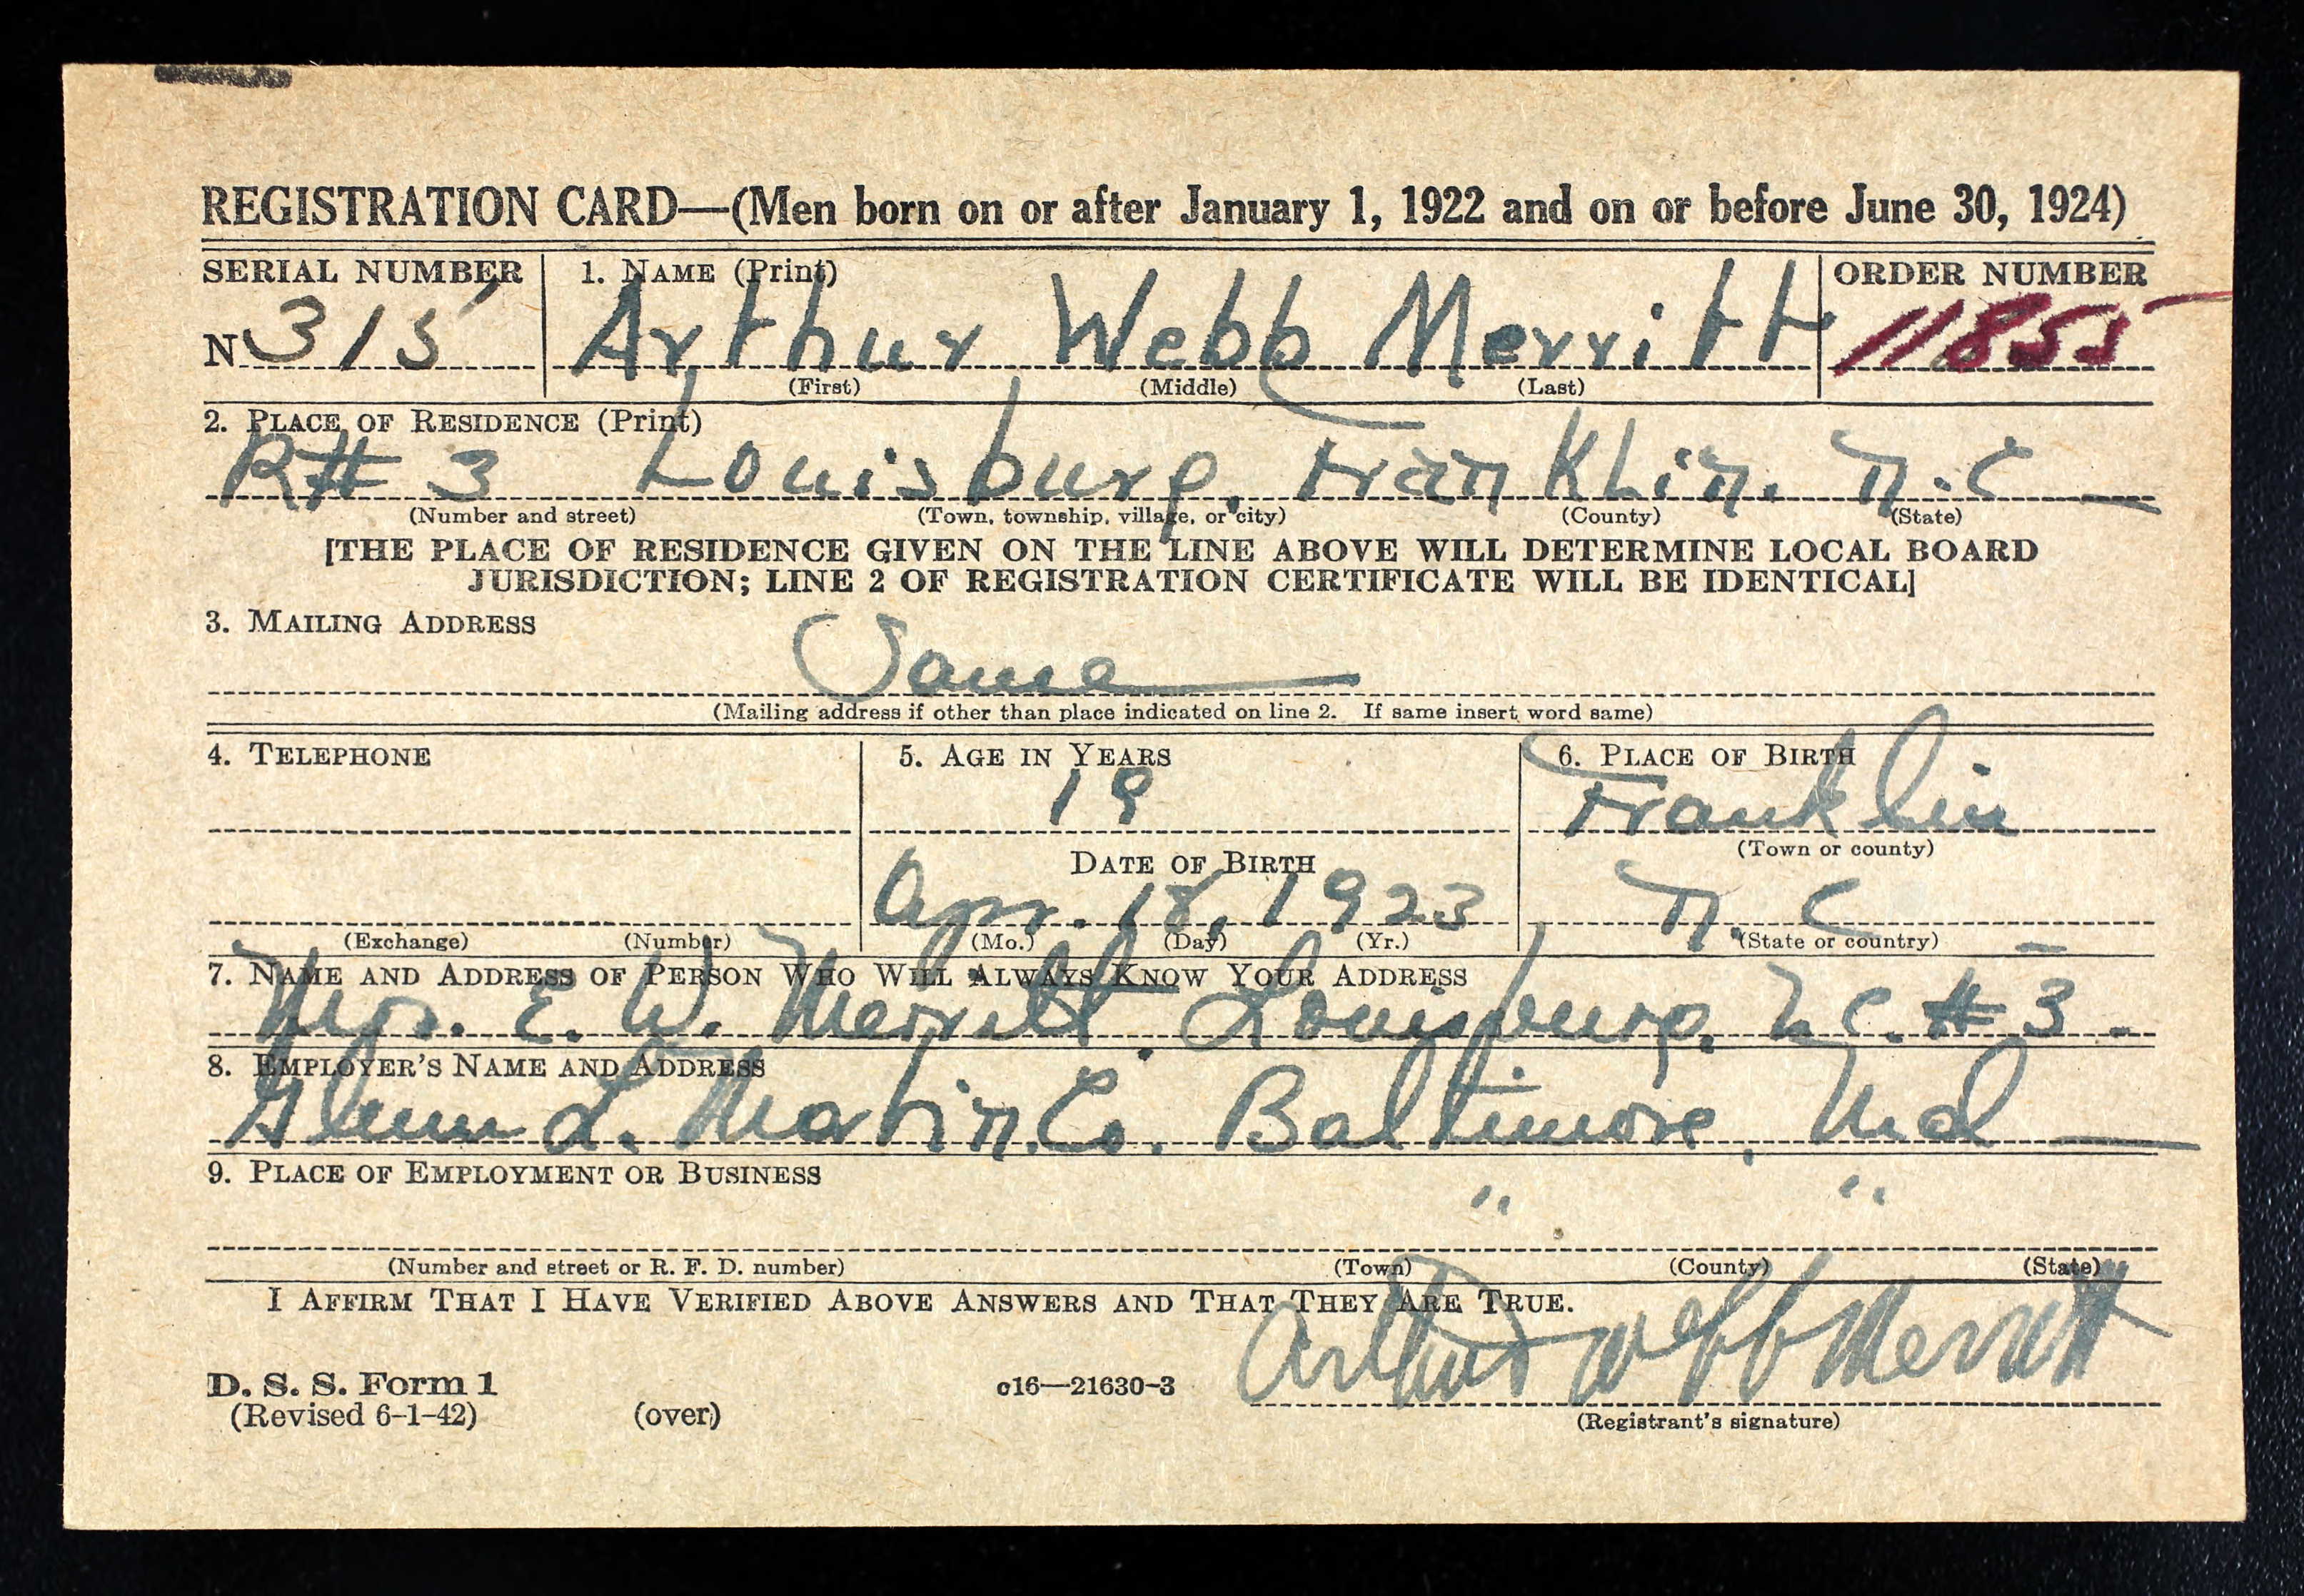 REGISTRATION CARD—(Men born on or after January 1, 1922 and on or before June 30, 1924)
SERIAL NUMBER 1. NAME (Print) ORDER NUMBER
N 315 Arthur Webb Merritt 11855
(First) (Middle) (Last)
2. PLACE OF RESIDENCE (Print)
R# 3 Louisburg, Franklin. N.C
(Number and street) (Town, township, village, or city) (County) (State)
[THE PLACE OF RESIDENCE GIVEN ON THE LINE ABOVE WILL DETERMINE LOCAL BOARD
JURISDICTION; LINE 2 OF REGISTRATION CERTIFICATE WILL BE IDENTICAL]
3. MAILING ADDRESS
Same
(Mailing address if other than place indicated on line 2. If same insert word same)
4. TELEPHONE 5. AGE IN YEARS 6. PLACE OF BIRTH
19 Franklin
(Town or county)
DATE OF BIRTH
Apr. 18, 1923 N.C
(Exchange) (Number) (Mo.) (Day) (Yr.) (State or country)
7. NAME AND ADDRESS OF PERSON WHO WILL ALWAYS KNOW YOUR ADDRESS
Mrs. E. W. Merritt. Louisburg, N.C. # 3.
8. EMPLOYER'S NAME AND ADDRESS
Glenn L. Matin. Co. Baltimore, Md
9. PLACE OF EMPLOYMENT OR BUSINESS
" "
(Number and street or R. F. D. number) (Town) (County) (State)
I AFFIRM THAT I HAVE VERIFIED ABOVE ANSWERS AND THAT THEY ARE TRUE.
Arthur Webb Merritt
D. S. S. Form 1 c16—21630-3
(Revised 6-1-42) (over) (Registrant's signature)